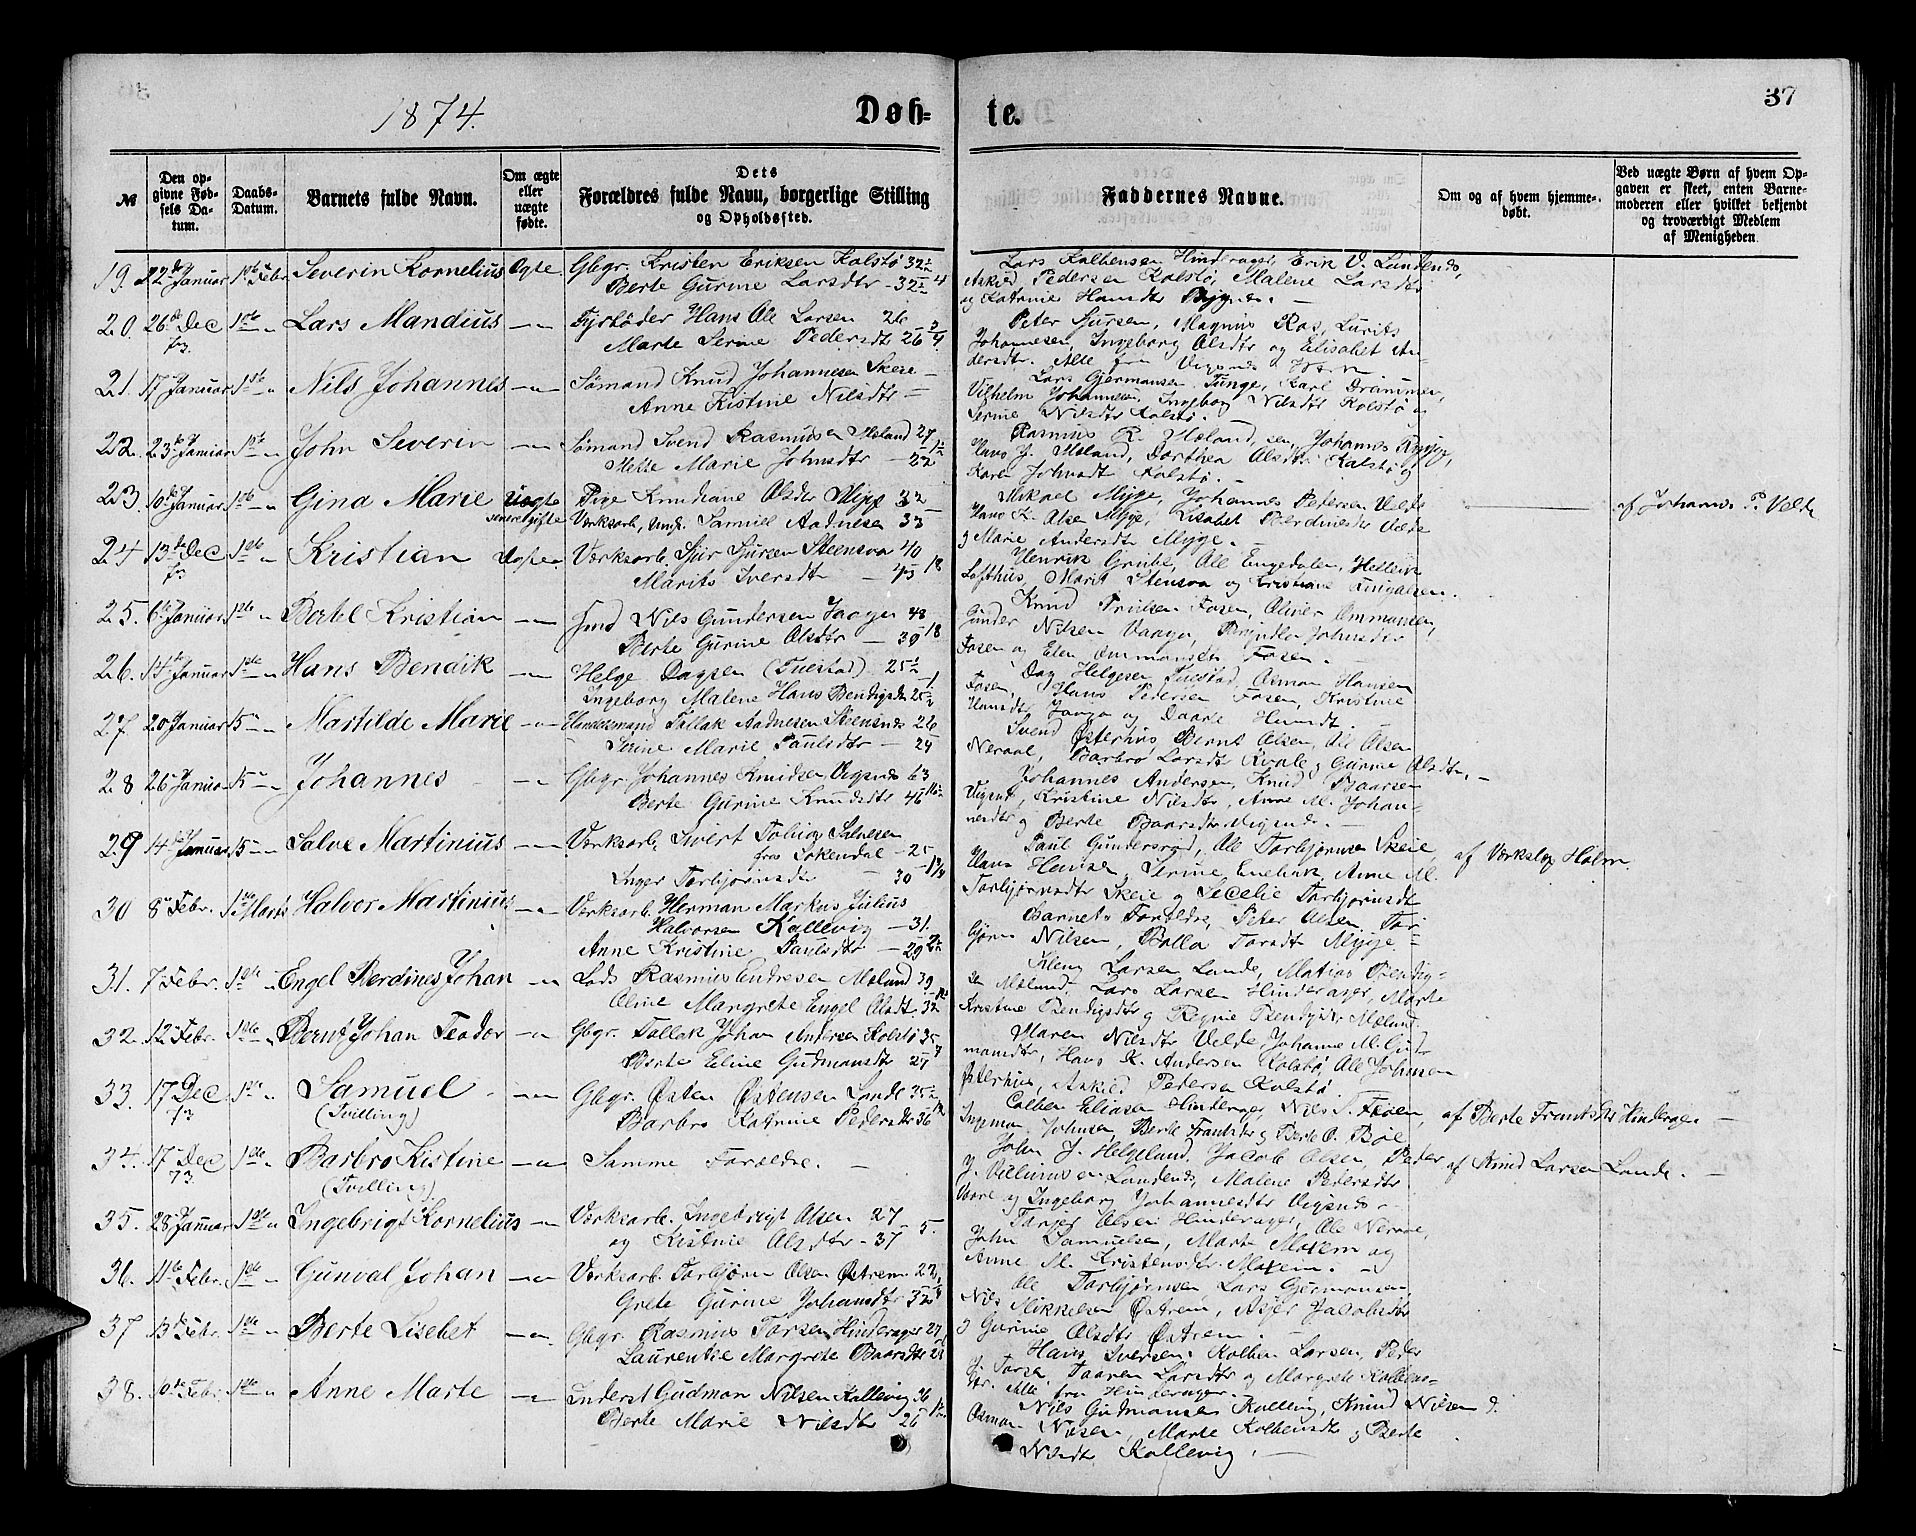 1874.
Døb-
te.
37
№
Den op-
givne Fød-
sels Da-
tum.
Daabs-
Datum.
Barnets fulde Navn.
Om ægte
eller
uægte
fødte.
Dets
Forældres fulde Navn, borgerlige Stilling
og Opholdssted.
Faddernes Navne.
Om og af hvem hjemme-
døbt.
Ved uægte Børn af hvem Op-
gaven er skeet, enten Barne-
moderen eller hvilket bekjendt
og troværdigt Medlem
af Menigheden.
19. 22de Januar 1ste Febr Severin Kornelius Ægte Gbgr. Kristen Eriksen Kolstø 32
Berte Gurine Larsdtr - 32
Lars Kolbensen Hinderager, Erik V. Lundends,
Askied Pedersen Kolstø, Malene Larsdtr
og Katrine Hansdtr Bygnes. -
20. 26de Dec 1ste Lars Mandius -"- Fyrbøder Hans Ole Larsen 26
73. Marte Serine Pedersdtr 26
Peter Sjursen, Magnus Ros, Lurits
Johannesen, Ingeborg Olsdtr og Elisabet An
dersdtr. Alle fra Vigsnes
21. 17 Januar 1ste " Nils Johannes -"- Sømand Knud Johannesen Skeie -
Anne Kistine Nilsdtr -
Lars Gjermansen Tunge, Karl Drammen,
Vilhelm Johannesen, Ingebog Nilsdtr Kolstø
Serine Nilsdtr Kolstø.
22. 23de Januar 1ste " John Severin -"- Sømand Svend Rasmusen Mæland 27
Mette Marie Johnsdtr - 22
Rasmus R. Mæland, sen, Johannes
Hans J. Mæland, Dorthea Olsdtr Kolstø og
Karen Johnsdt Kolstø. -
23. 10de Januar 1ste " Gina Marie Uægte Pige Knudiane Olsdtr Myge 32
senere gifte Værksarb, Ungk. Samuel Aadnesen 33
Mikael Myge, Johannes Pedersen Velde
Hans K. Olsen Myge, Lisabet Velde
og Marie Andersdtr Myge. -
af Johanns P. Velde
24 13de Dec 1ste " Kristian Værksarb. Sjur Sjursen Steensoa 40
73 Marits Iversdtr - 43 18
Henrik Grube, Ole Engedalen, Hellevik
Lofthus, Marit Stensoa og Kristiane
25. 6te Januar 1ste " Bertel Kristian -"- Nils Gundersen Vaage 48
Berte Gurine Olsdtr - 39 18
Knud Trulsen Fosen, Oliver Ommansen,
Gunder Nilsen Vaage, Johnsdtr
Fosen og Elen Ommansdtr Fosen. -
26. 14de Januar 1ste " Hans Bendik -"- Helge Dagsen (Tuestad) 25
Ingeborg Malene Hans Bendigsdtr 25
Dag Helgesen Tuestad, Osmon Hansen
Fosen, Hans Pedersen Fosen, Kristine
Hansdtr Vaage og Daarte Hansdt. -
27. 20 Januar 15 " Martilde Marie -"- Handelsmand Tollak Aadnesen Steensnes 26
Serine Marie Paulsdtr - 24
Svend Østerhus Bernt Olsen, Ole Olsen
Neraal, Barbro Larsdtr Kvale og Gurine Olsdtr. -
28 26 Januar 15 " Johannes -"- Gbgr. Johannes Knudsen Vigsnes 63
Berte Gurine Knudsdtr 46
Johannes Andersen, Knud Baarsen
Vigsnes, Kristine Nilsdtr, Anne M. Johan-
nesdtr og Berte Baarsdtr Vigsnes. -
29 14de Januar 15 " Salve Martinius -"- Værksarb. Sivert Tobias Salvesen
fra Sokendal - 25
Inger Torbjørnsdtr - 30
Paul Gundersrød, Ole Torbjørnsen Skeie,
Hans Hansen, Serine, Anne M.
Torbjørnsdtr Skeie og Cecelie Torbjørnsdt
af Værkslæg Holm.
30 8de Febr. 1ste Marts Halvor Martinius -"- Værksarb. Herman Markus Julius
Halvorsen Kallevig - 31.
Anne Kristine Paulsdtr - 29
Barnets Forældre, Peter Olsen Tor
bjørn Nilsen, Bolla Torsdtr Myge -
31. 7 Febr. 1ste " Engel Berdines Johan -"- Lods Rasmus Endresen Mæland 39
Oline Margrete Engel Olsdt. 32
Kleng Larsen Lunde, Matias Bendig-
sen Mæland, Lars Larsen Hinderager, Marte
Kristine Bendigsdtr og Regine Bendigsdtr Mæland
32. 12 Febr. 1ste " Bernt Johan Teodor -"- Gbgr. Tollak Johan Andersen Kolstø 35
Berte Eline Gudmansdtr 27
Maren Nilsdtr Velde, Johanne M. Gud-
mansdtr, Hans K. Andersen Kolstø, Ole Johnsen
Østerhus, Askied Pedersen Kolstø
33. 17 Dec 1ste " Samuel -"- Gbgr. Østen Østensen Lande 35
73 (Tvilling) Barbro Katrine Pedersdtr 36
Colben Eliasen Hinderager, Nils T. Fosen,
Ingeman Johnsen, Berte Frantsdtr og Berte O. Bøe
af Berte Frantsdtr Hinderage. -
34. 17 Dec 1ste " Barbro Kistine -"- Samme Forældre. -
73. (Tvilling)
John J. Helgeland, Jacob Olsen, Peder
J. Villumsen Landends, Malene Pedersdtr
Vaare og Ingeborg Johannesdtr Vigsnes -
af Knud Larsen Lande. -
35. 28 Januar 1ste " Ingebrigt Kornelius -"- Værksarb. Ingebrigt Olsen 27
og Kistine Olsdtr - 37 5.
Torjer Olsen Hinderager, Ole Neraae,
John Samuelsen, Marte Moxem og
Anne M. Kristensdtr Moxem. -
36. 11te Febr. 1ste " Gunval Johan -"- Værksarb. Torbjørn Olsen Østrem 22
Grete Gurine Johansdtr 32
Ole Torbjørnsen, Lars Gjermansen,
Nils Mikkelsen Østrem, Asjer Jacobsdtr
og Gurine Olsdtr Østrem. -
37 13de Febr. 1ste " Berte Lisebet -"- Gbgr. Rasmus Torsen Hinderager 27
Laurentse Margrete Baarsdtr 23
Hans Iversen, Kolben Larsen, Peder
Torsen, Taaren Larsdtr og Margrete Kolbens-
dtr. Alle fra Hinderager.
38. 10de Febr. 1ste " Anne Marte -"- Inderst Gudman Nilsen Kallevig 36
Berte Marie Nilsdtr 26
Nils Gudmansen Kallevig, Knud Nilsen d.
Osman Nilsen, Marte Kolbensdtr og Berte
Nilsdtr Kallevig. -